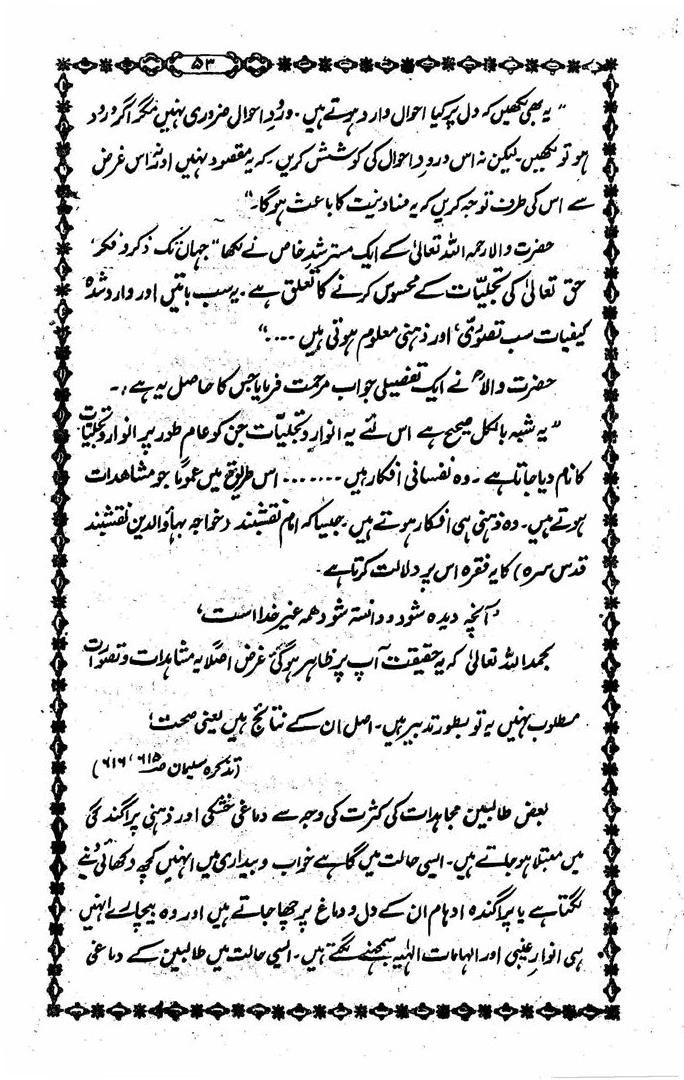 ۵۳
"یہ بھی لکھیں کہ دل پر کیا احوال وارد ہوتے ہیں۔ ورودِ احوال ضروری نہیں مگر اگر ورود
ہو تو لکھیں لیکن نہ اس ورودِ احوال کی کوشش کریں۔ کہ یہ مقصود نہیں اور نہ اس غرض
سے اس کی طرف توجہ کریں کہ یہ منادنیت کا باعث ہوگا۔"
حضرت والا رحمہ اللہ تعالیٰ کے ایک مسترشدِ خاص نے لکھا "جہاں تک ذکر و فکر،
حق تعالیٰ کی تجلیّات کے محسوس کرنے کا تعلق ہے۔ یہ سب باتیں اور وارد شدہ
کیفیات سب تصوّری، اور ذہنی معلوم ہوتی ہیں ...."
حضرت والاؒ نے ایک تفصیلی جواب مرحمت فرمایا جس کا حاصل یہ ہے:۔
"یہ شبہ بالکل صحیح ہے اس لئے یہ انوار و تجلیّات جن کو عام طور پر انوار و تجلیّات
کا نام دیا جاتا ہے۔ وہ نفسانی افکار ہیں ....... اس طریق میں عموماً جو مشاہدات
ہوتے ہیں۔ وہ ذہنی ہی افکار ہوتے ہیں۔ جیسا کہ امام نقشبند (خواجہ بہاؤالدین نقشبند
قدس سرہ) کا یہ فقرہ اس پر دلالت کرتا ہے۔
'آنچہ دیدہ شود و دانستہ شود ہمہ غیر خدا است'
بحمد اللہ تعالیٰ کہ یہ حقیقت آپ پر ظاہر ہوگئی غرض اصلاً یہ مشاہدات و تصوّرات
مطلوب نہیں یہ تو بطور تدبیر ہیں۔ اصل ان کے نتائج ہیں یعنی صحت"
(تذکرہ سلیمان صـ ۶۱۵، ۶۱۶)
بعض طالبین مجاہدات کی کثرت کی وجہ سے دماغی خشکی اور ذہنی پراگندگی
میں مبتلا ہو جاتے ہیں۔ ایسی حالت میں گاہے خواب و بیداری میں انہیں کچھ دکھائی دینے
لگتا ہے یا پراگندہ اوہام ان کے دل و دماغ پر چھا جاتے ہیں اور وہ بیچارے انہیں
ہی انوارِ غیبی اور الہامات الٰہیہ سمجھنے لگتے ہیں۔ ایسی حالت میں طالبین کے دماغی